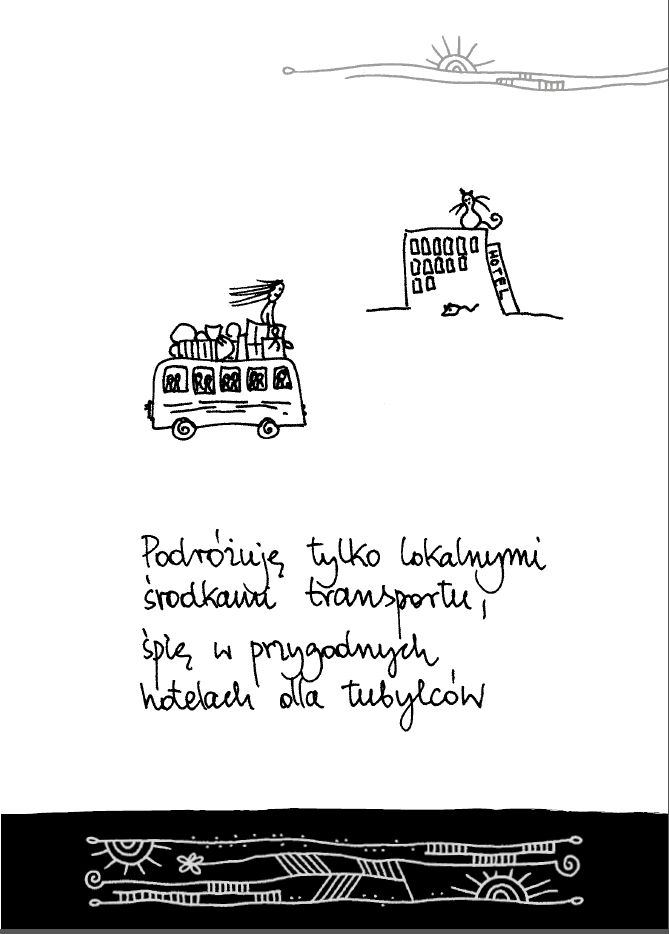 HOTEL
Podróżuję tylko lokalnymi
środkami transportu,
śpię w przygodnych
hotelach dla tubylców